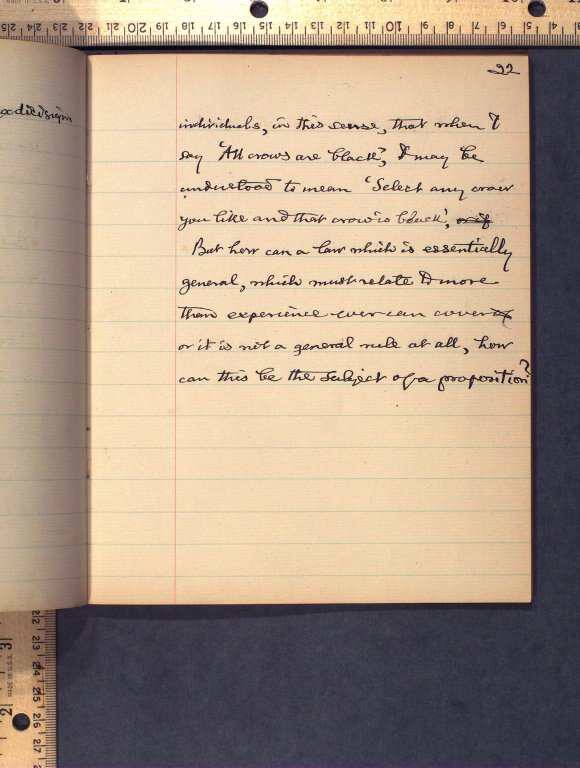 92
individuals, in this sense, that when I
say 'All crows are black', I may be
understood to mean 'Select any crow
you like and that crow is black', or if
But how can a law which is essentially
general, which must relate to more
than experience ever can cover of
or it is not a general rule at all, how
can this be the subject of a proposition?